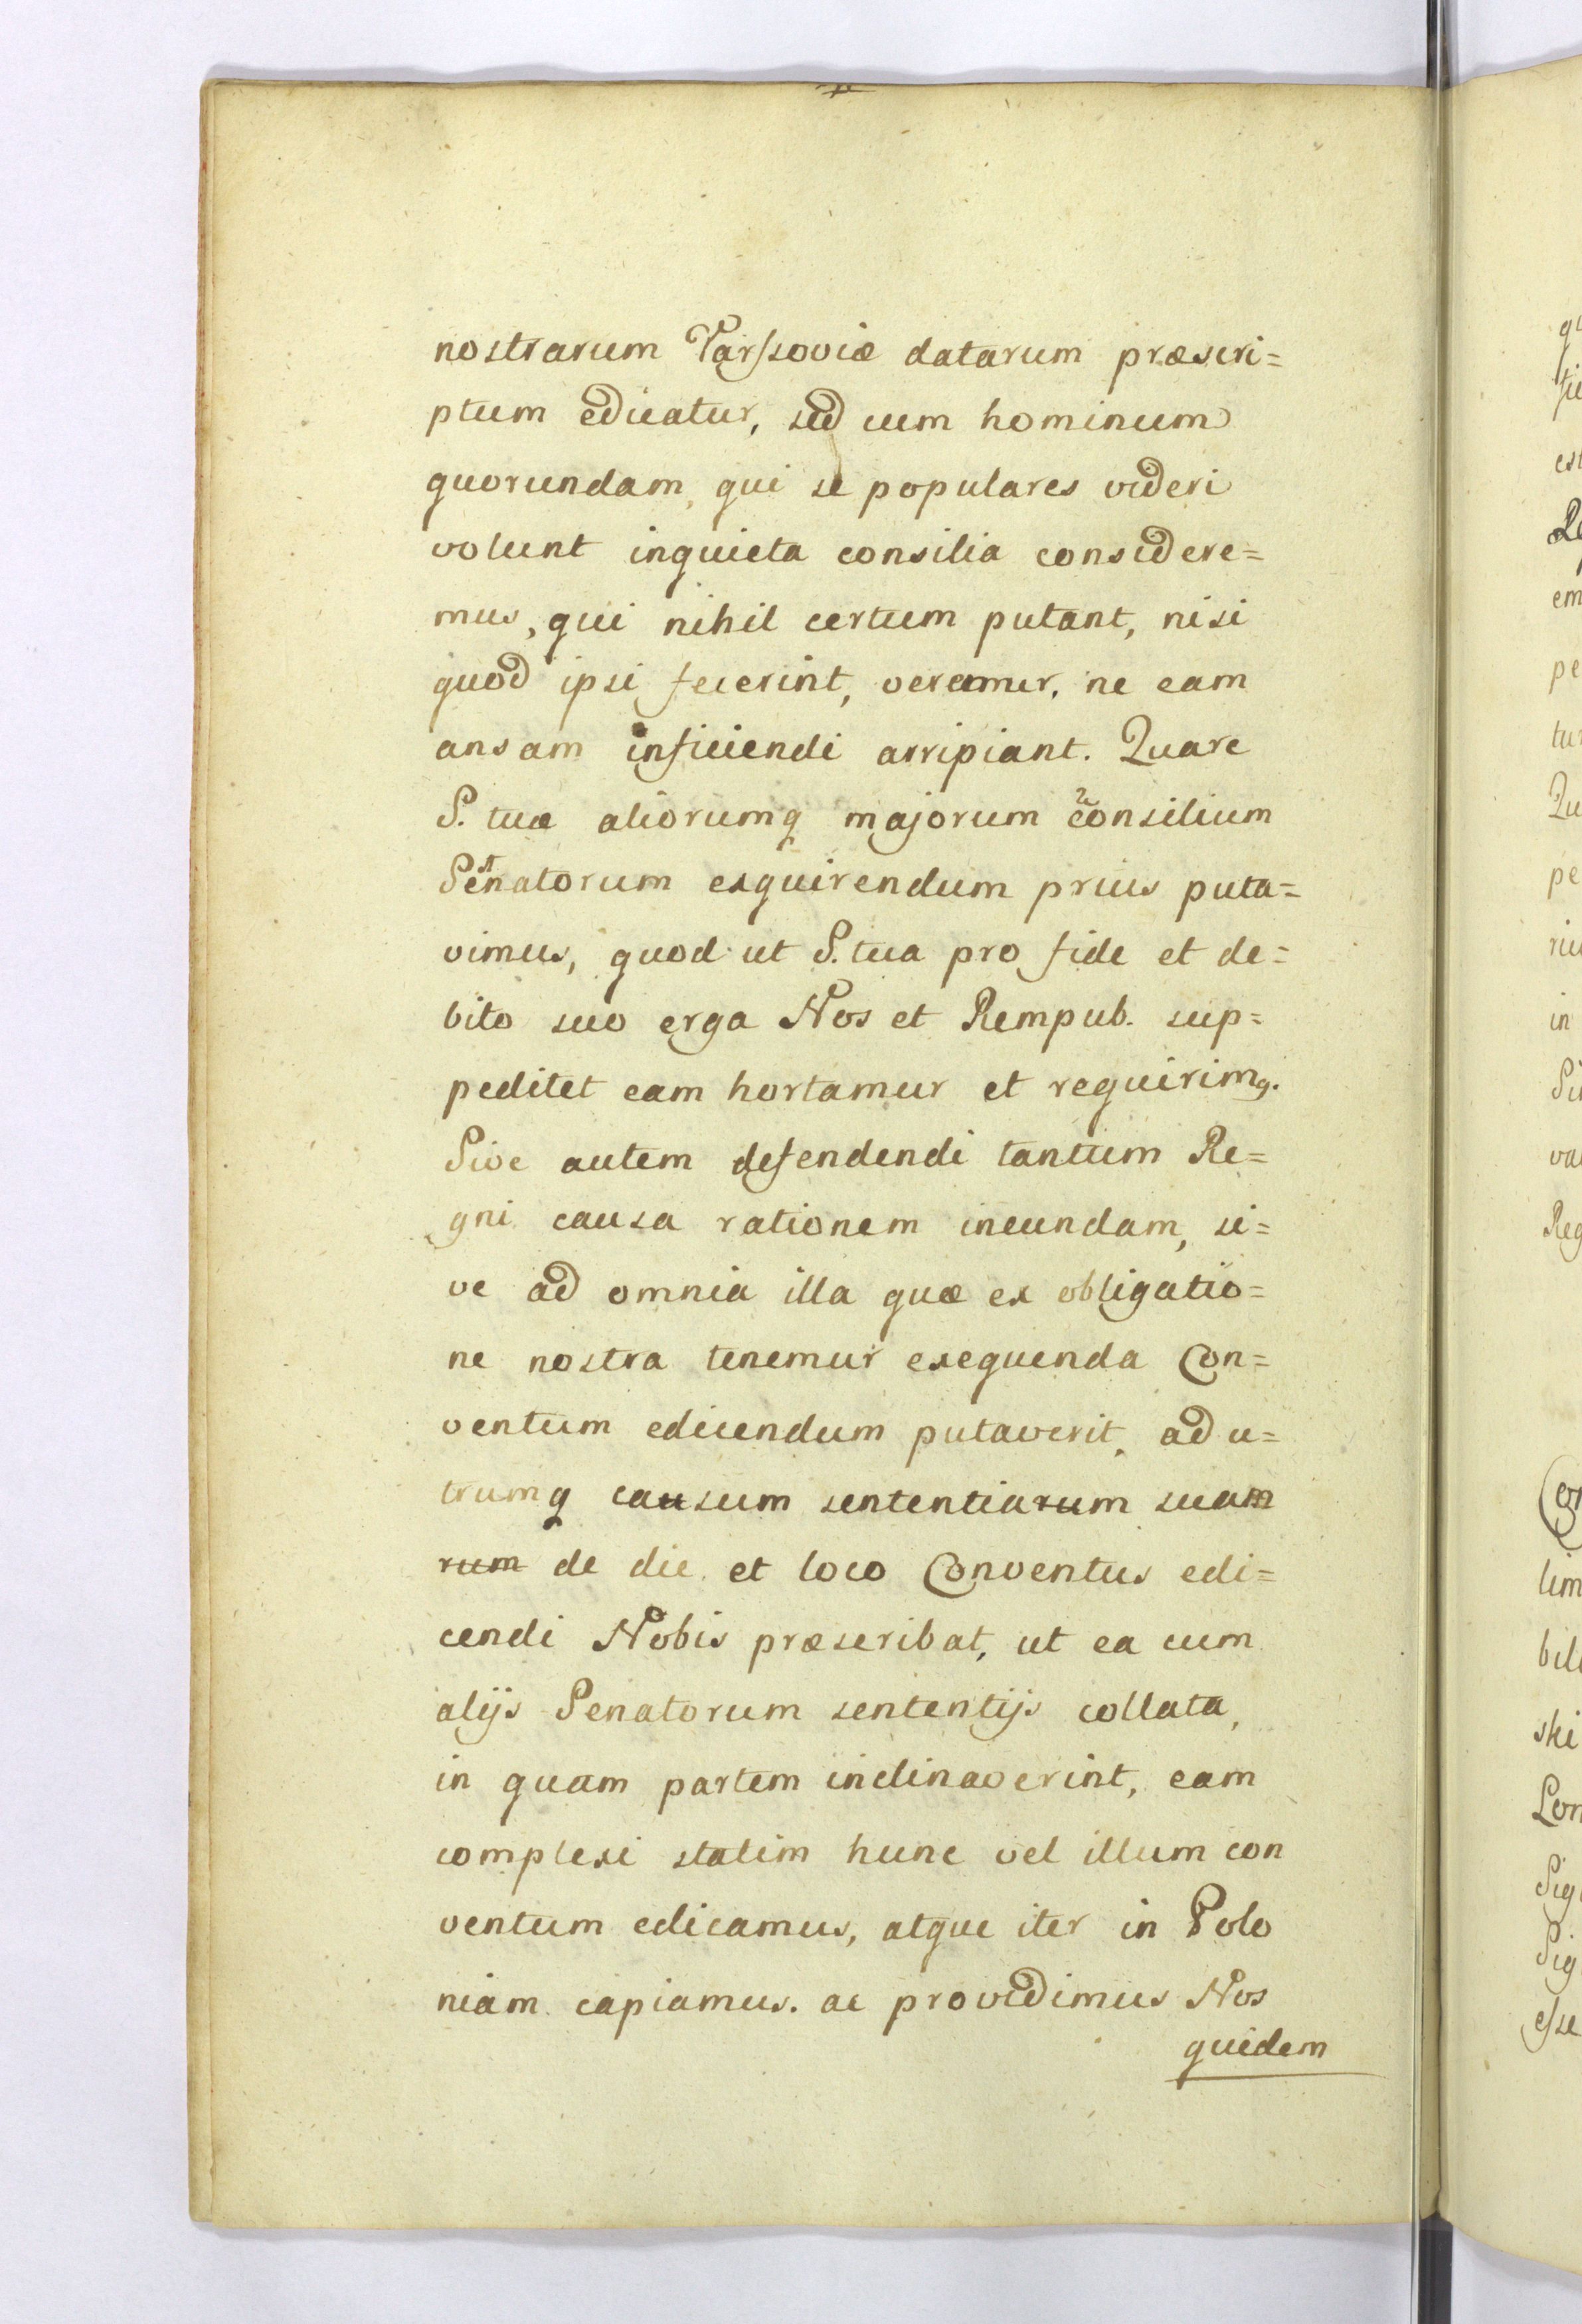 nostrarum Varſsoviæ datarum præscri=
ptum edicatur, sed cum hominum
quorundam, qui se populares videri
volunt inquieta consilia considere=
mus, qui nihil certum putant, nisi
quod ipsi fecerint, veremur, ne eam
ansam inficiendi arripiant. Quare
S. tuæ aliorumq majorum 2 consilium
1 Senatorum exquirendum prius puta=
vimus, quod ut S. tua pro fide et de=
bito suo erga Nos et Rempub. sup=
peditet eam hortamur et requirimꝰ.
Sive autem defendendi tantum Re=
gni causa rationem ineundam, si=
ve ad omnia illa quæ ex obligatio=
ne nostra tenemur exequenda Con=
ventum edicendum putaverit, ad u=
trumq causum sententiarum suam
rum de die et loco Conventus edi=
cendi Nobis præscribat, ut ea cum
alijs Senatorum sententijs collata,
in quam partem inclinaverint, eam
complexi statim hunc vel illum con
ventum edicamus, atque iter in Polo
niam capiamus. ac providimus Nos
quidem